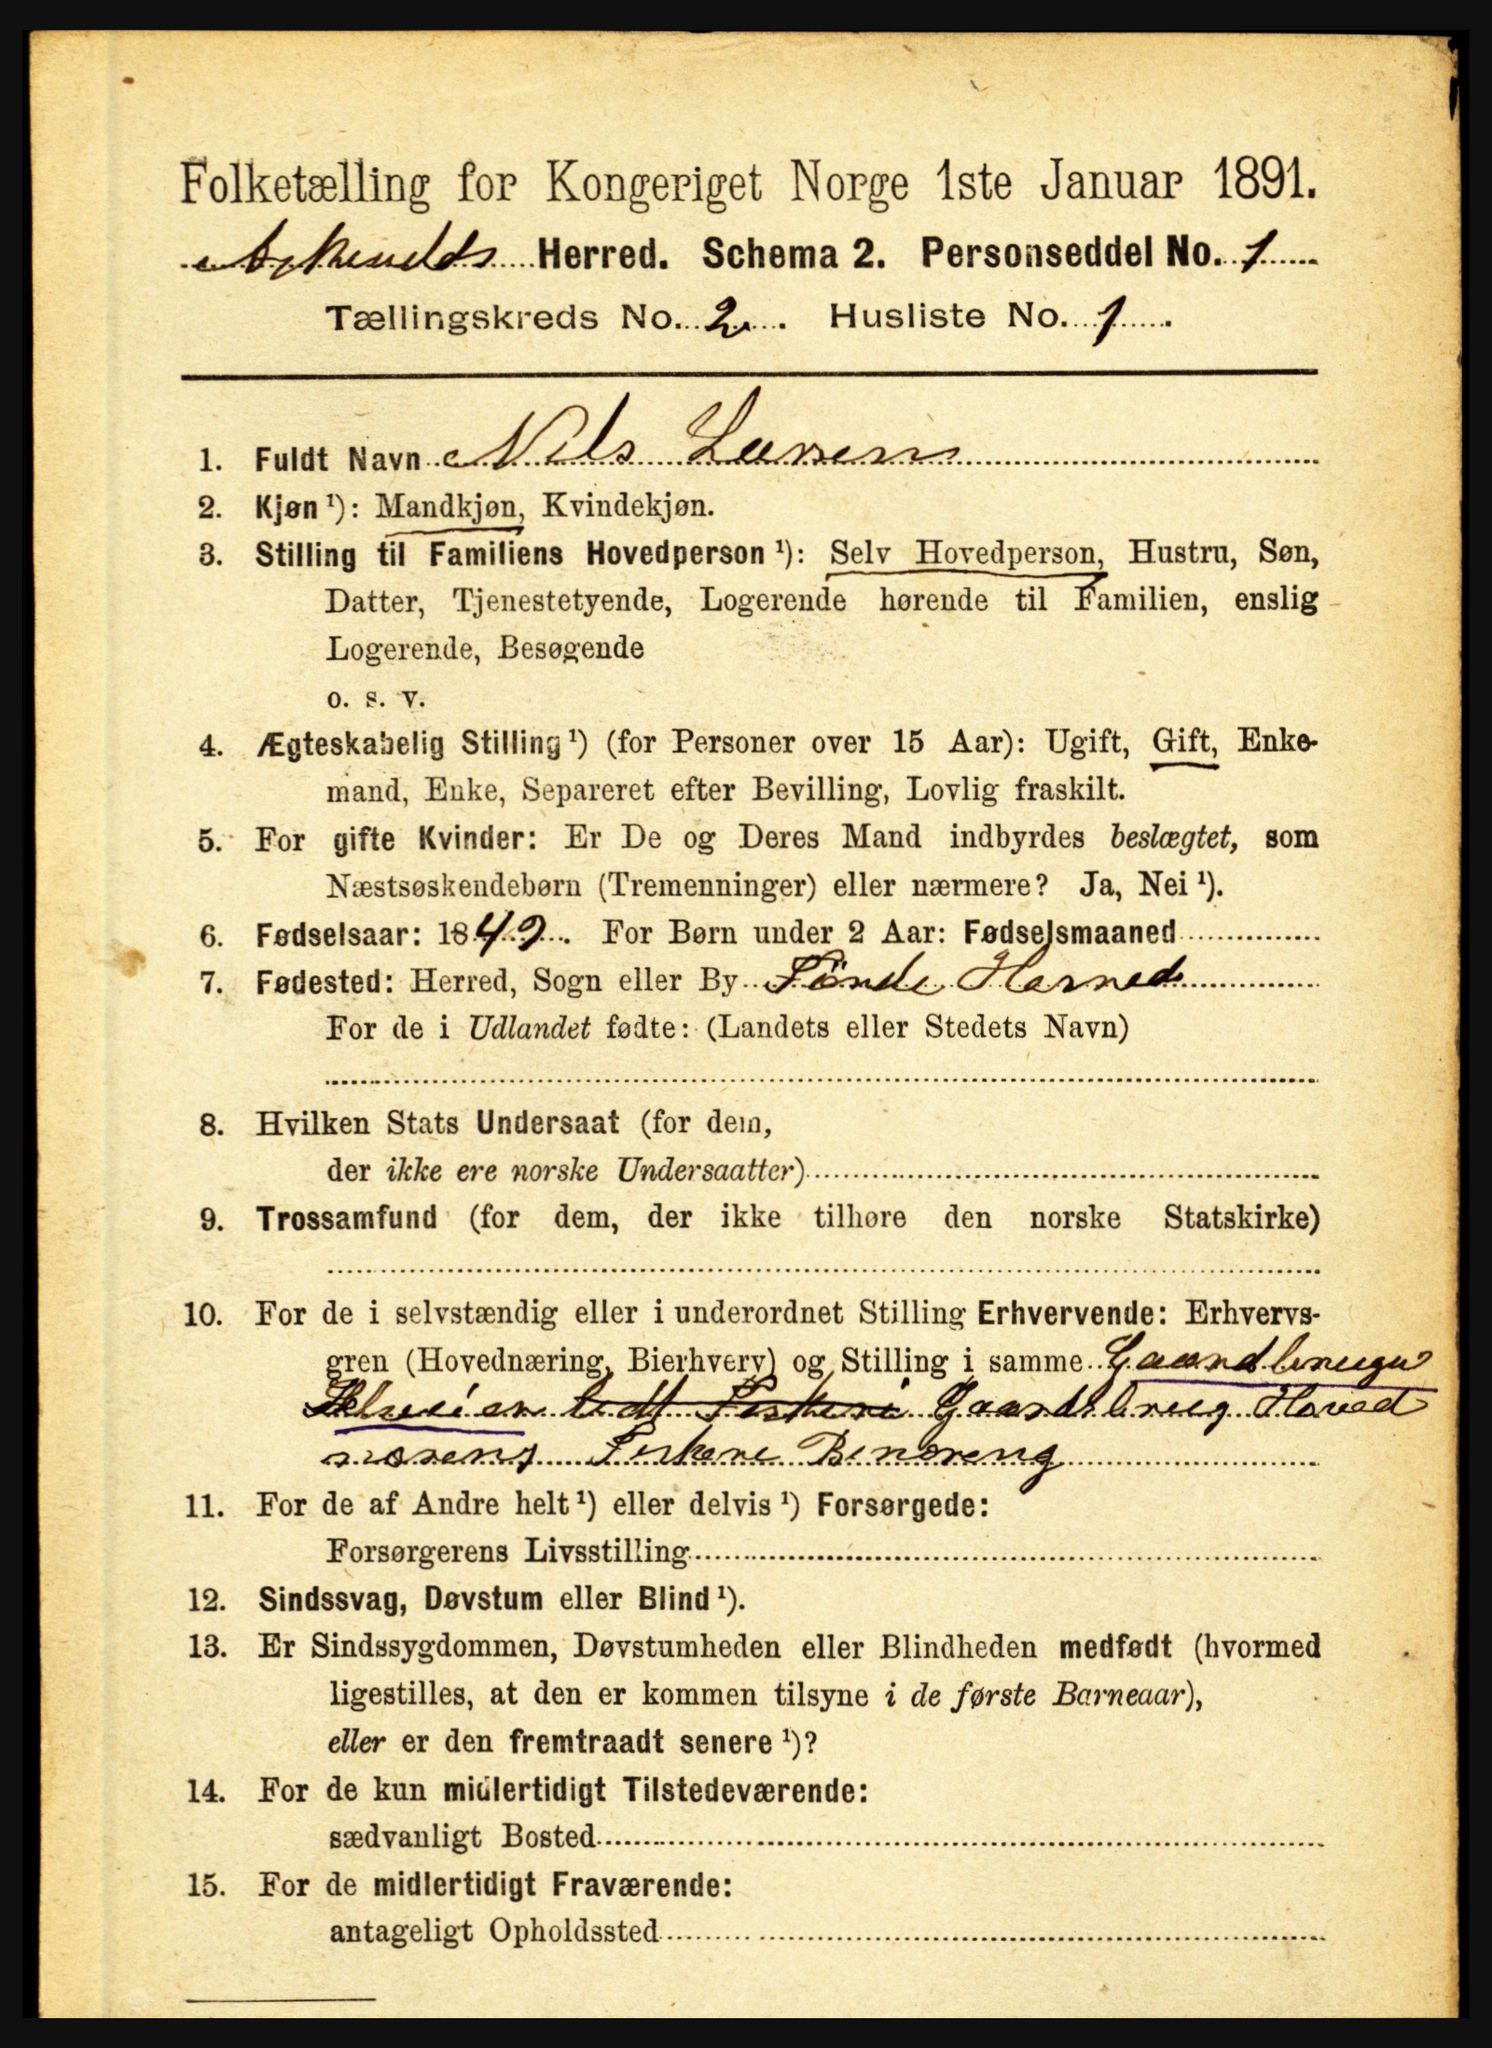 Folketælling for Kongeriget Norge 1ste Januar 1891.
Herred. Schema 2. Personseddel No. 1
Tællingskreds No. 2. Husliste No. 1.
1. Fuldt Navn Nils Larsen
2. Kjøn ¹): Mandkjøn, Kvindekjøn.
3. Stilling til Familiens Hovedperson ¹): Selv Hovedperson, Hustru, Søn,
Datter, Tjenestetyende, Logerende hørende til Familien, enslig
Logerende, Besøgende
o. s. v.
4. Ægteskabelig Stilling ¹) (for Personer over 15 Aar): Ugift, Gift, Enke-
mand, Enke, Separeret efter Bevilling, Lovlig fraskilt.
5. For gifte Kvinder: Er De og Deres Mand indbyrdes beslægtet, som
Næstsøskendebørn (Tremenninger) eller nærmere? Ja, Nei ¹).
6. Fødselsaar: 1849. For Børn under 2 Aar: Fødselsmaaned
7. Fødested: Herred, Sogn eller By Søndre Herred
For de i Udlandet fødte: (Landets eller Stedets Navn)
8. Hvilken Stats Undersaat (for dem,
der ikke ere norske Undersaatter)
9. Trossamfund (for dem, der ikke tilhøre den norske Statskirke)
10. For de i selvstændig eller i underordnet Stilling Erhvervende: Erhvervs-
gren (Hovednæring, Bierhverv) og Stilling i samme Gaardbruger
Selveier Gaardsbrug Hoved
næreng Fiskere Binæreng
11. For de af Andre helt ¹) eller delvis ¹) Forsørgede:
Forsørgerens Livsstilling
12. Sindssvag, Døvstum eller Blind ¹).
13. Er Sindssygdommen, Døvstumheden eller Blindheden medfødt (hvormed
ligestilles, at den er kommen tilsyne i de første Barneaar),
eller er den fremtraadt senere ¹)?
14. For de kun midlertidigt Tilstedeværende:
sædvanligt Bosted
15. For de midlertidigt Fraværende:
antageligt Opholdssted